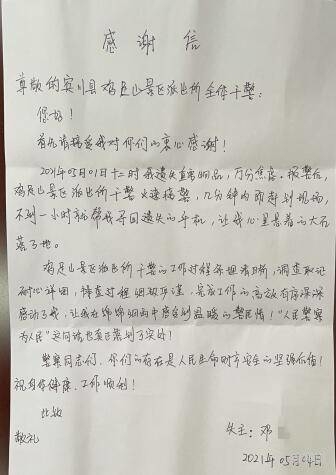 感谢信
尊敬的宾川县鸡足山景区派出所全体干警：
您好！
首先请接受我对你们的衷心感谢！
2021年05月01日十二时我遗失贵重物品，万分焦虑。报警后，
鸡足山景区派出所干警火速接警，几分钟内即赶到现场，
不到一小时就帮我寻回遗失的手机，让我心里悬着的大石
落了地。
鸡足山景区派出所干警的工作过程条理清晰，调查取证
耐心详细，排查过程细致严谨，完成工作的高效有序深深
感动了我，让我在绵绵细雨中感受到温暖的警民情！“人民警察
为人民”这句话也真正落到了实处！
警察同志们，你们的存在是人民生命财产安全的坚强后盾！
祝身体健康，工作顺利！
此致
敬礼
失主：邓
2021年05月04日